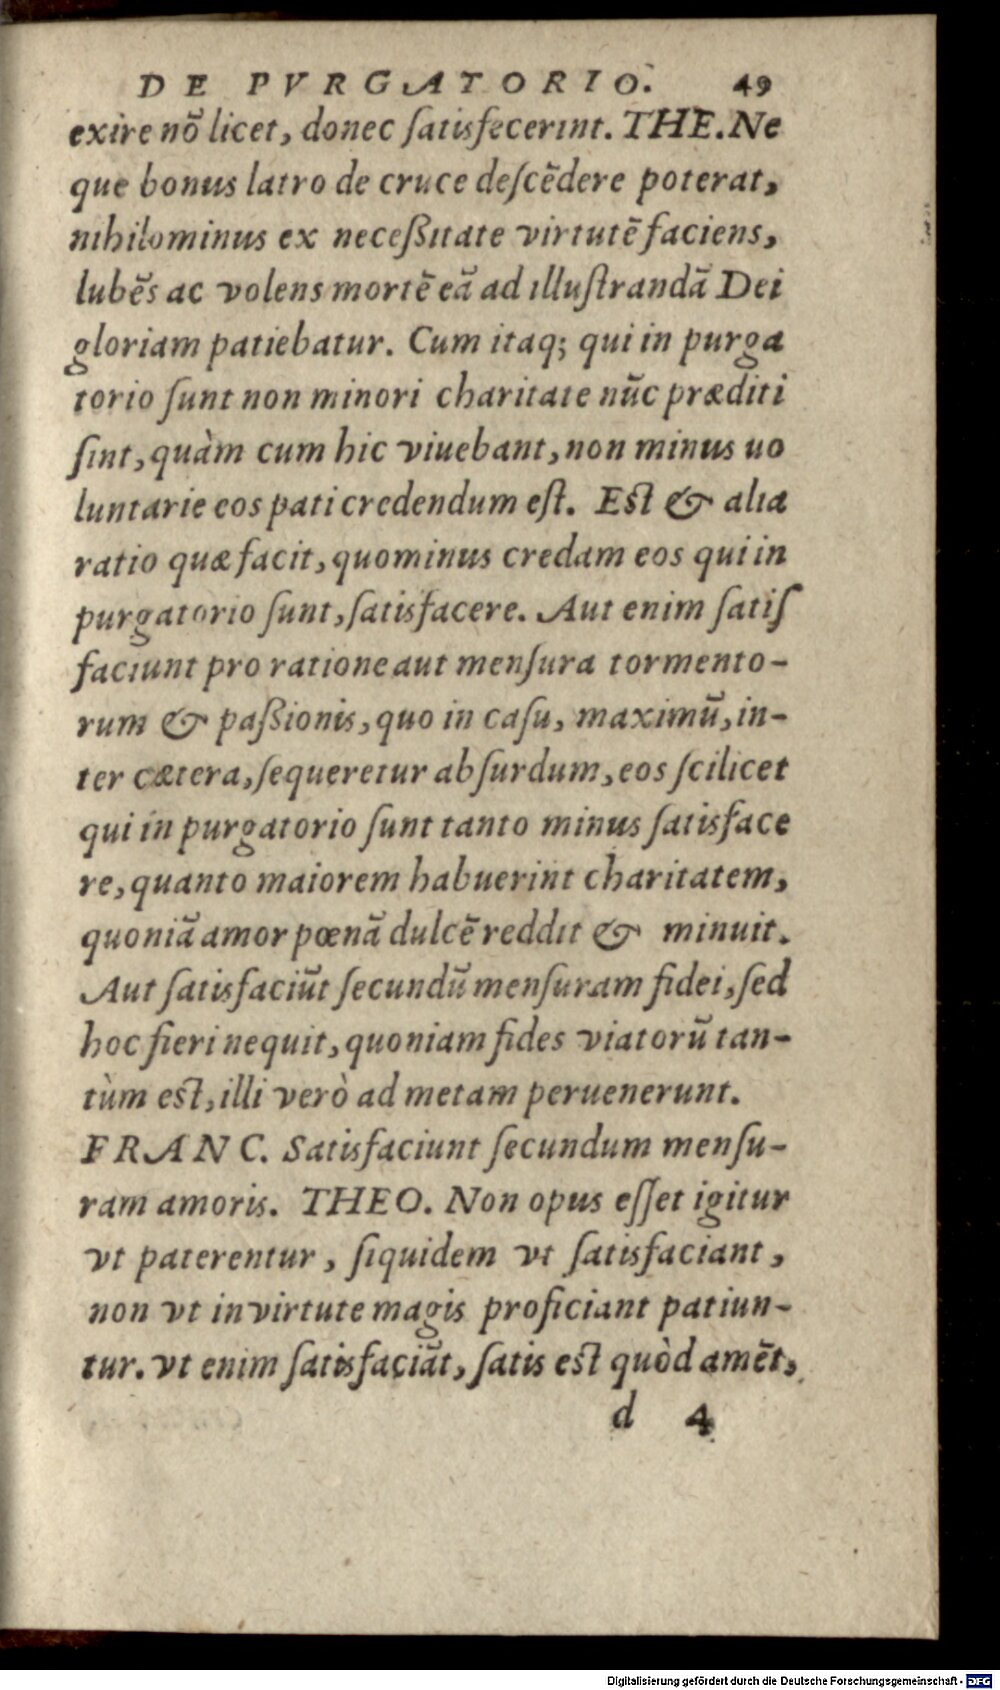 DE PVRGATORIO. 49
exire nō licet, donec ſatisfecerint. THE. Ne
que bonus latro de cruce deſcēdere poterat,
nihilominus ex neceßitate virtutē faciens,
lubēs ac volens mortē eā ad illuſtrandā Dei
gloriam patiebatur. Cum itaq; qui in purga
torio ſunt non minori charitate nūc præditi
ſint, quàm cum hic viuebant, non minus uo
luntarie eos pati credendum eſt. Eſt & alia
ratio quæ facit, quominus credam eos qui in
purgatorio ſunt, ſatisfacere. Aut enim ſatiſ
faciunt pro ratione aut menſura tormento-
rum & paßionis, quo in caſu, maximū, in-
ter cætera, ſequeretur abſurdum, eos ſcilicet
qui in purgatorio ſunt tanto minus ſatisface
re, quanto maiorem habuerint charitatem,
quoniā amor pœnā dulcē reddit & minuit.
Aut ſatisfaciūt ſecundū menſuram fidei, ſed
hoc fieri nequit, quoniam fides viatorū tan-
tùm eſt, illi verò ad metam peruenerunt.
FRANC. Satisfaciunt ſecundum menſu-
ram amoris. THEO. Non opus eſſet igitur
vt paterentur, ſiquidem vt ſatisfaciant,
non vt in virtute magis proficiant patiun-
tur. vt enim ſatisfaciāt, ſatis eſt quòd amēt,
d 4
Digitalisierung gefördert durch die Deutsche Forschungsgemeinschaft - DFG